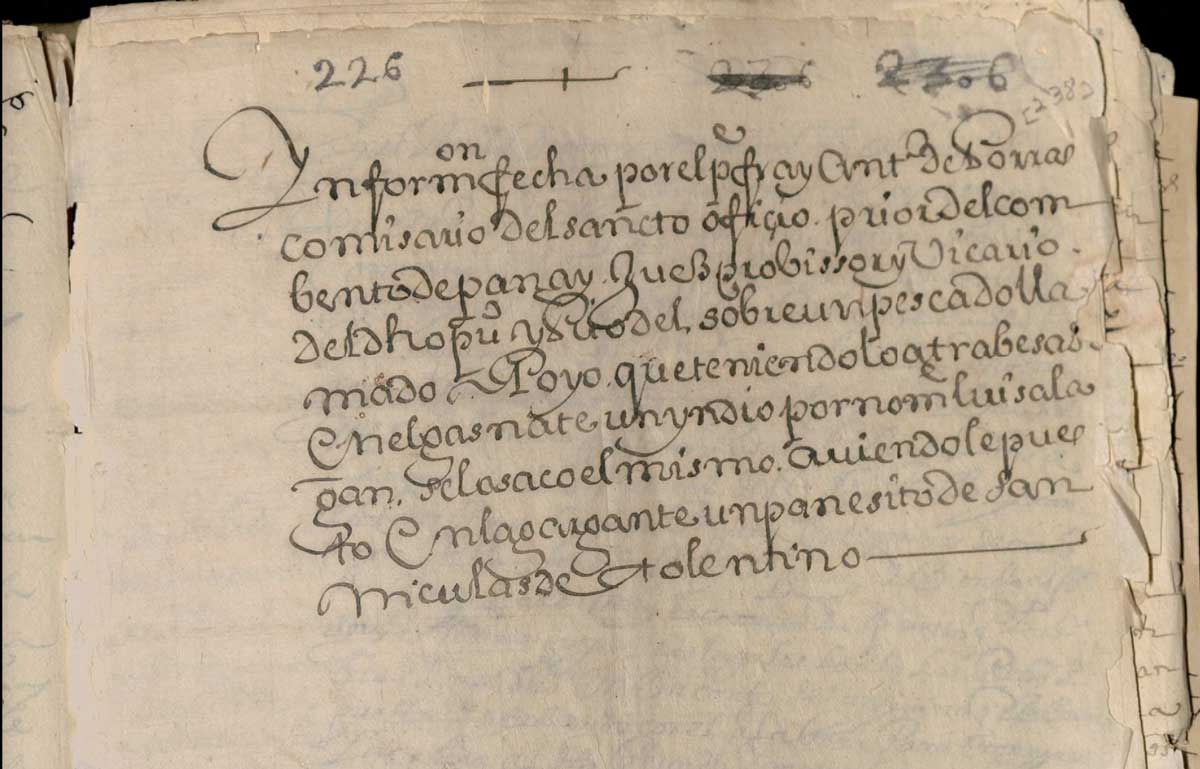 226
[238]
Ynformon fecha por el pe fray Antº de Porras
comisario del sancto officio. prior del com
bento de panay. Juez probissor y Vicario
del dho pu y disto del, sobre un pescado lla
mado Poyo. que teniendolo atrabesado
En el gasnate un yndio por nom luis ala
gan. se lo saco el mismo. aviendole pues
to En la gargante un panesito de San
Niculas de Tolentino